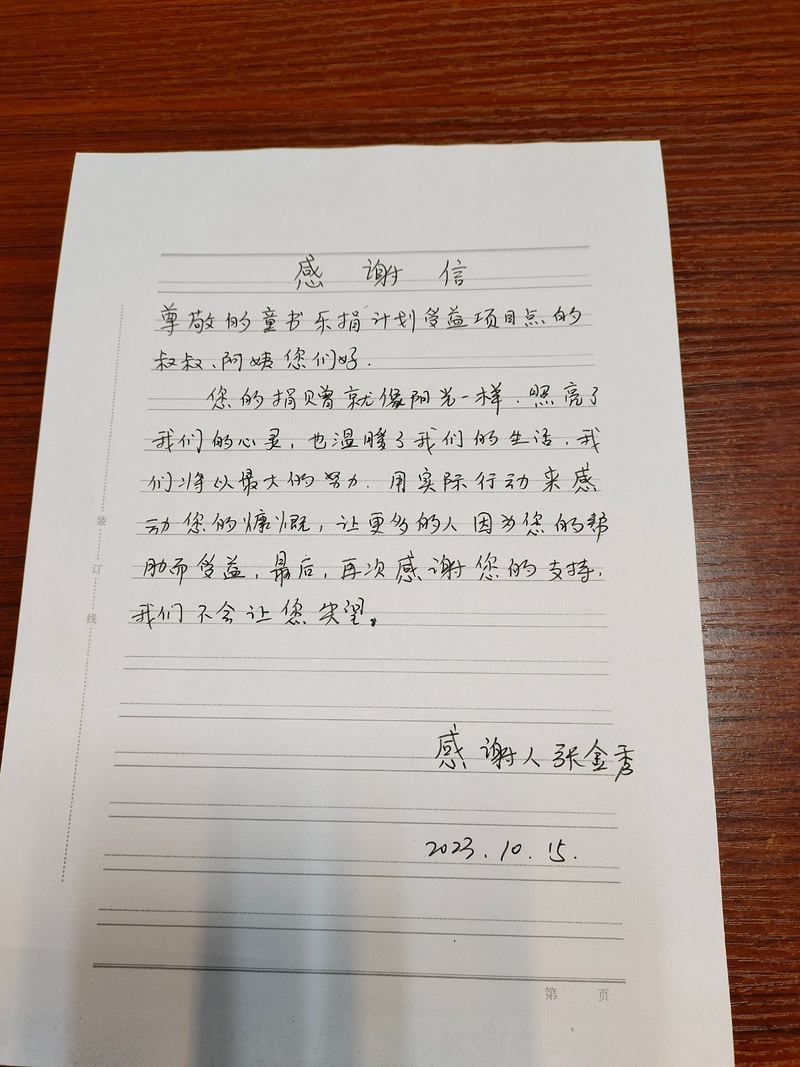 感谢信
尊敬的童书乐捐计划受益项目点的
叔叔、阿姨您们好.
您的捐赠就像阳光一样.照亮了
我们的心灵,也温暖了我们的生活.我
们将以最大的努力.用实际行动来感
动您的慷慨,让更多的人因为您的帮
助而受益,最后,再次感谢您的支持,
我们不会让您失望。
感谢人张金秀
2023.10.15.
装
订
线
第 页